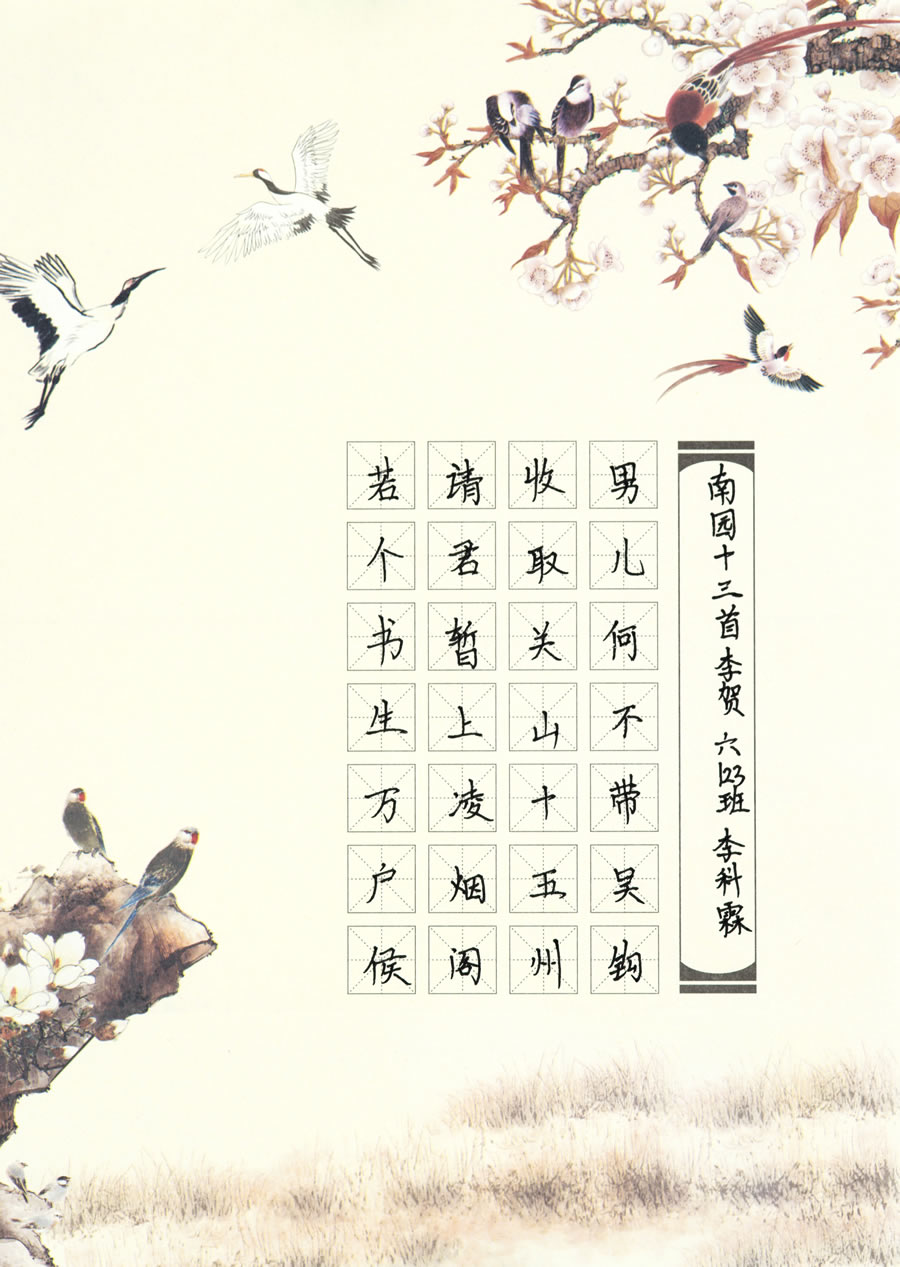 南园十三首 李贺 六123班 李科霖
男儿何不带吴钩
收取关山十五州
请君暂上凌烟阁
若个书生万户侯